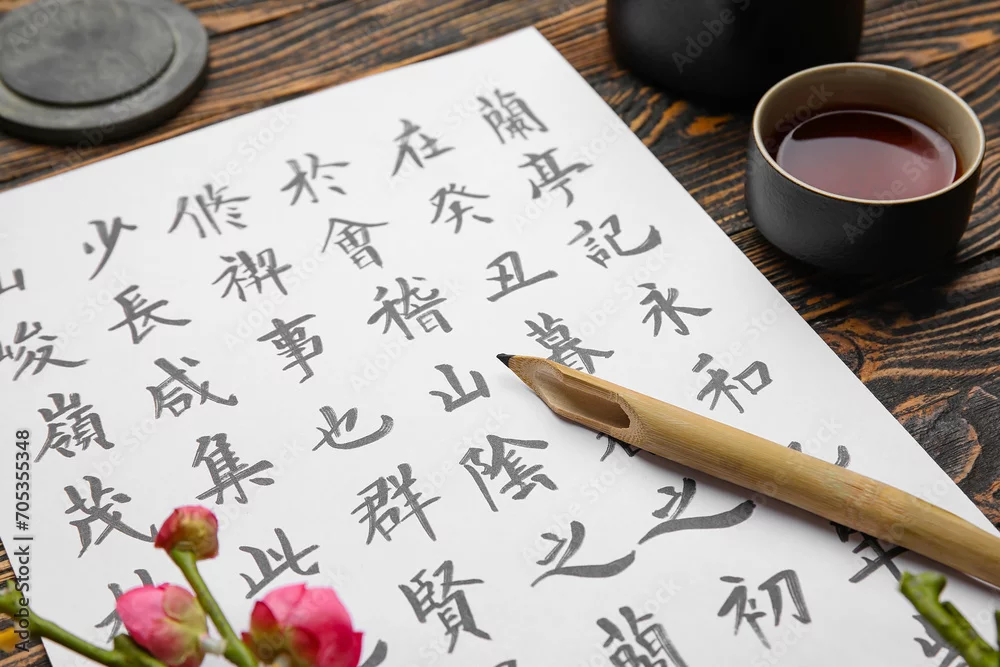 蘭亭記永和年
在癸丑暮之初
於會稽山陰之蘭
修禊事也群賢
少長咸集此
山峻嶺茂
Adobe Stock | #705355348